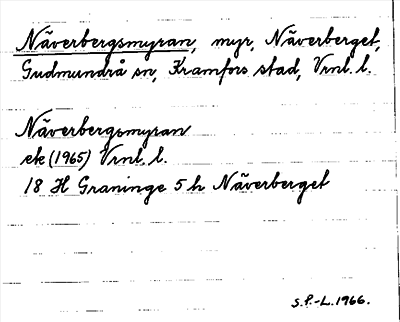 Näverbergsmyran, myr, Näverberget,
Gudmundrå sn, Kramfors stad, Vrnl. l.
Näverbergsmyran
ek (1965) Vrnl. l.
18 H Graninge 5 h Näverberget
S.P.-L. 1966.